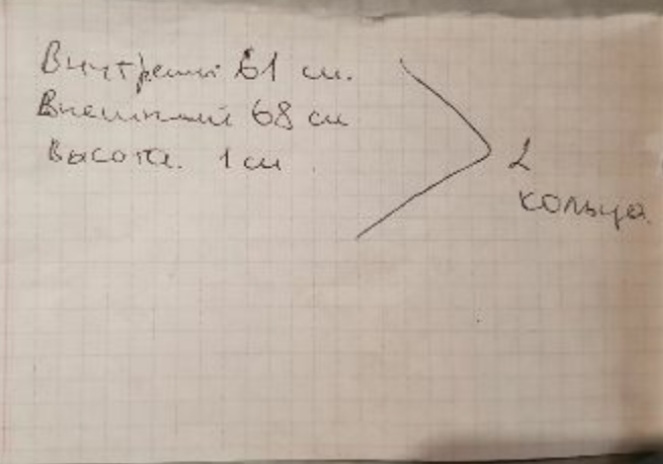 Внутрений 61 см.
Внешний 68 см
Высота. 1 см
2
кольца.